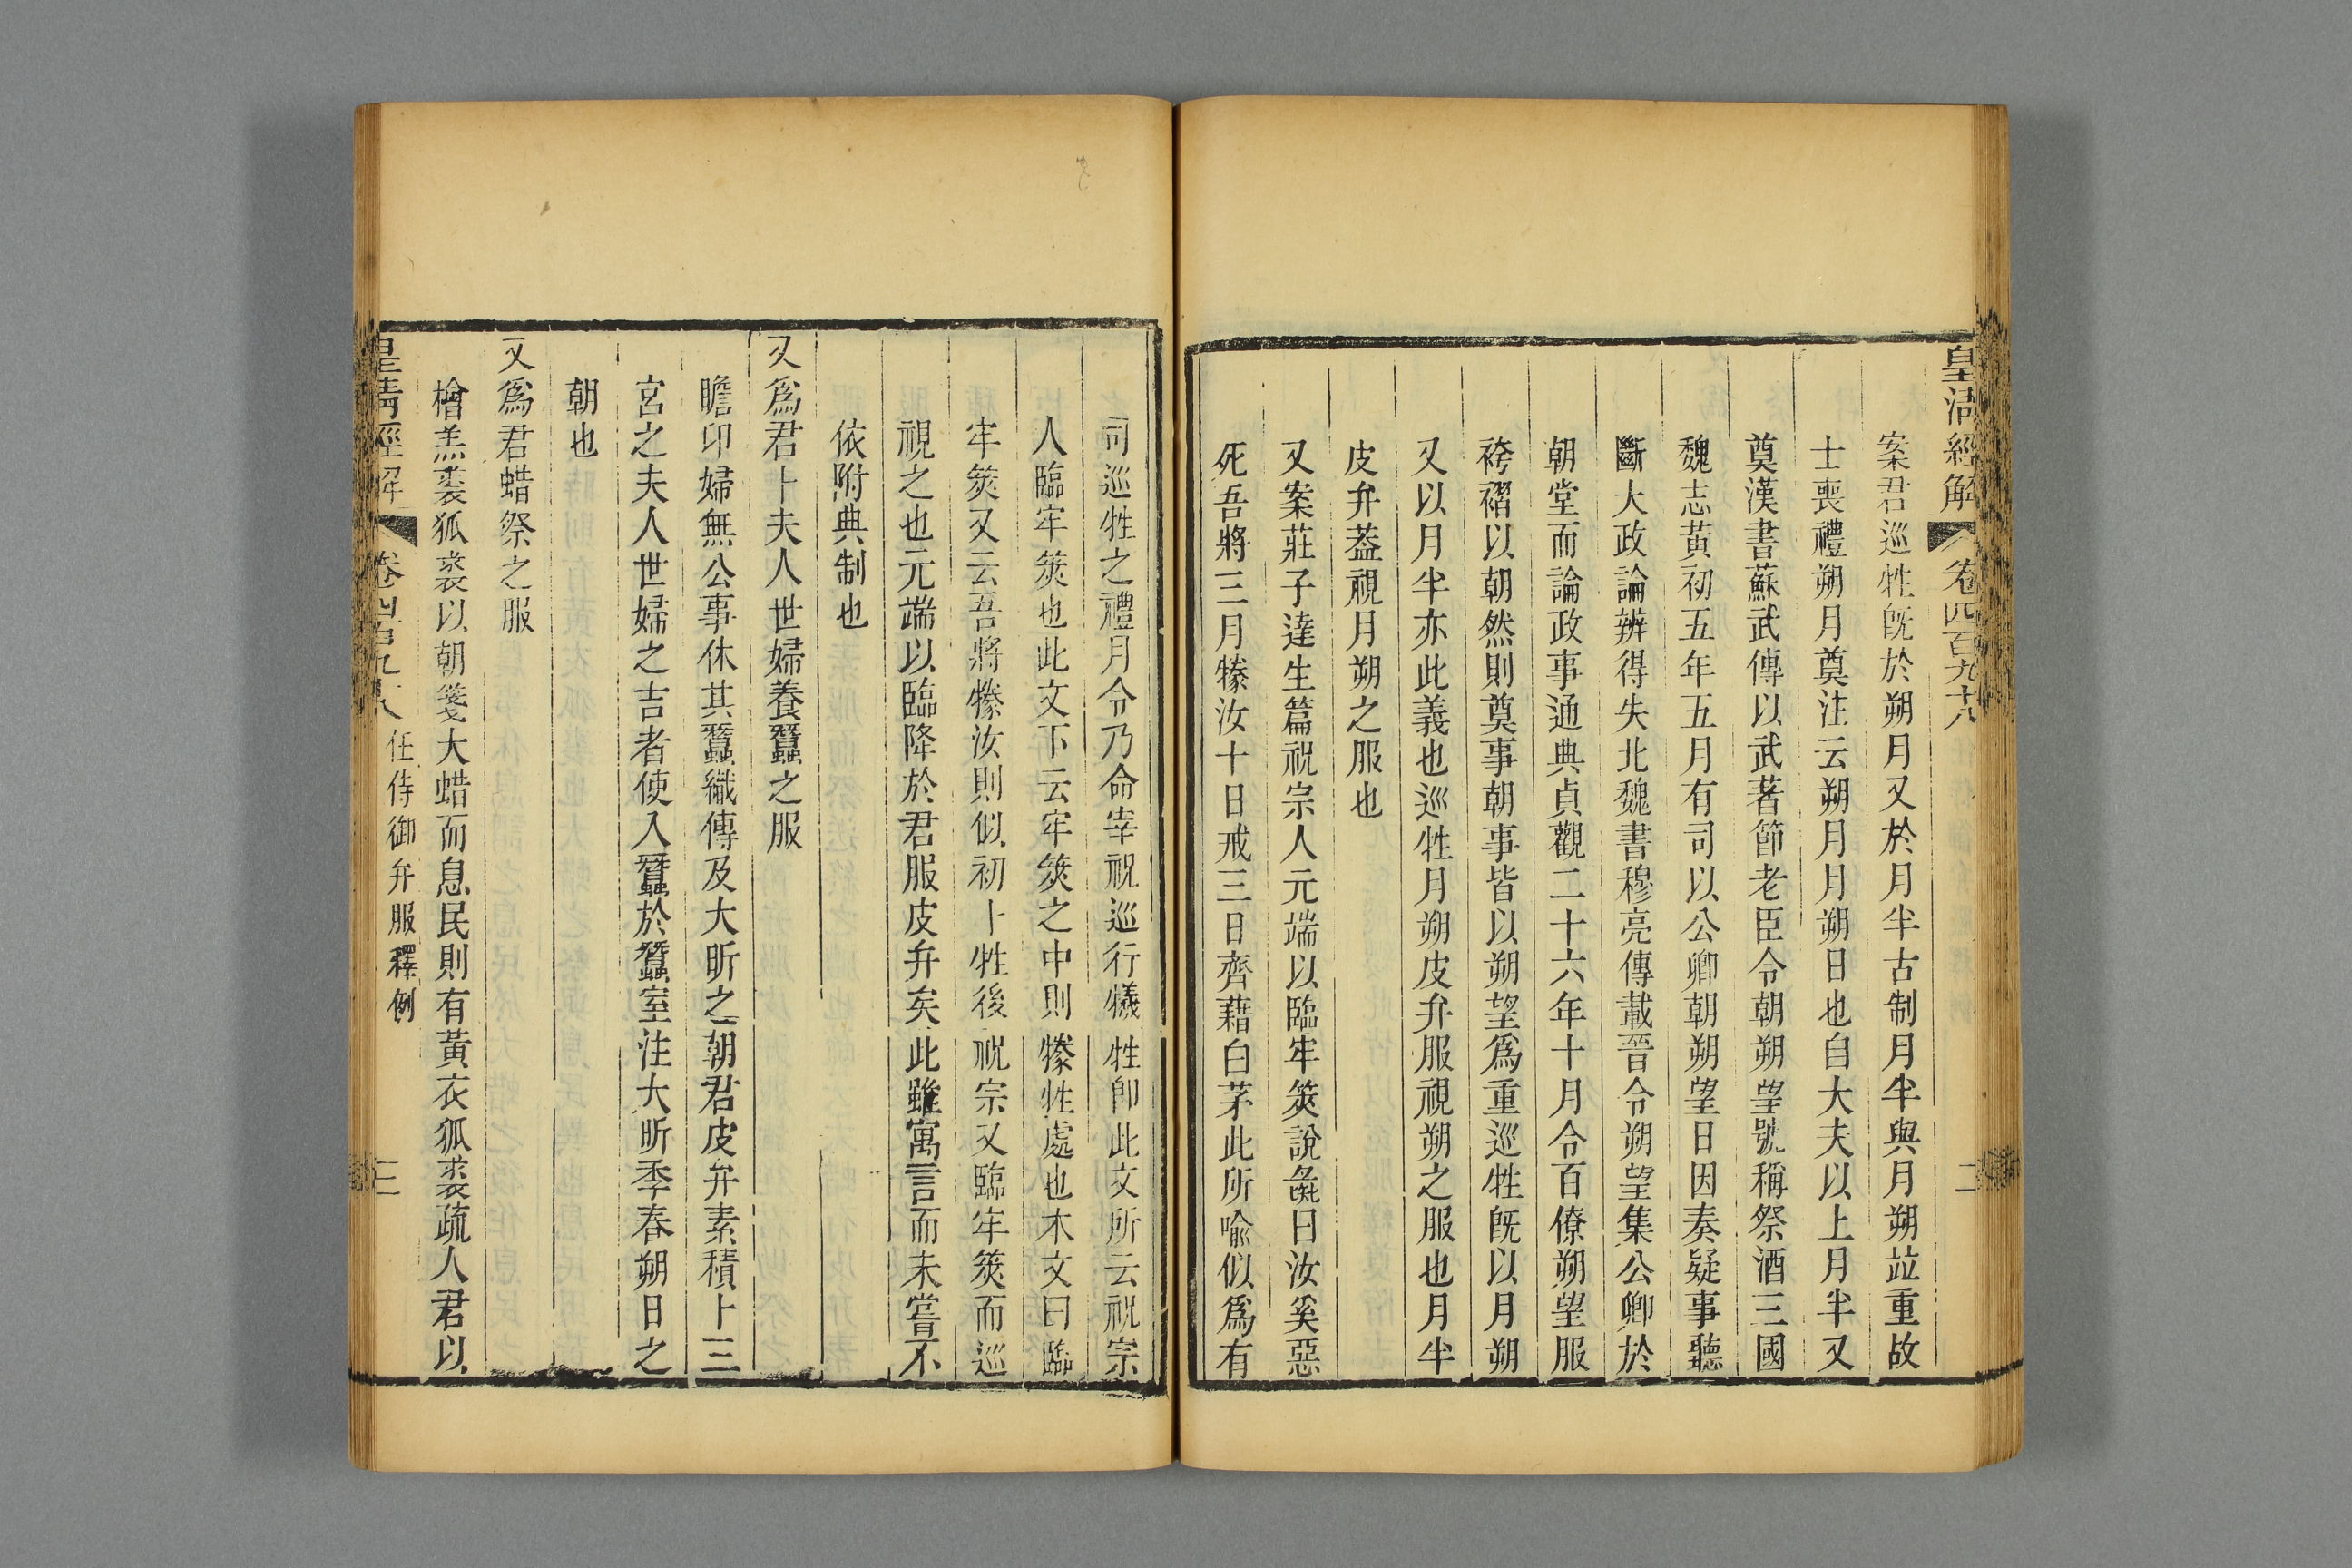 皇清經解 卷四百九十八 二
案君巡牲旣於朔月又於月半古制月半與月朔竝重故
士喪禮朔月奠注云朔月月朔日也自大夫以上月半又
奠漢書蘇武傳以武著節老臣令朝朔望號稱祭酒三國
魏志黃初五年五月有司以公卿朝朔望日因奏疑事聽
斷大政論辨得失北魏書穆亮傳載晉令朔望集公卿於
朝堂而論政事通典貞觀二十六年十月令百僚朔望服
袴褶以朝然則奠事朝事皆以朔望爲重巡牲旣以月朔
又以月半亦此義也巡牲月朔皮弁服視朔之服也月半
皮弁葢視月朔之服也
又案莊子達生篇祝宗人元端以臨牢筴說彘曰汝奚惡
死吾將三月㹖汝十日戒三日齊藉白茅此所喩似爲有
司巡牲之禮月令乃命宰祝巡行犧牲卽此文所云祝宗
人臨牢筴也此文下云牢筴之中則㹖牲處也木文曰臨
牢筴又云吾將㹖汝則似初卜牲後祝宗又臨牢筴而巡
視之也元端以臨降於君服皮弁矣此雖寓言而未嘗不
依附典制也
又爲君卜夫人世婦養蠶之服
瞻卬婦無公事休其蠶織傳及大昕之朝君皮弁素積卜三
宮之夫人世婦之吉者使入蠶於蠶室注大昕季春朔日之
朝也
又爲君蜡祭之服
檜羔裘狐裘以朝箋大蜡而息民則有黃衣狐裘疏人君以
皇清經解 卷四百九十八 任侍御弁服釋例 三